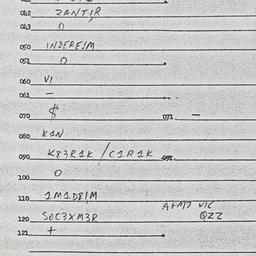 042 ZANTIR
043 0
050 INDEREIM
051 0
060 VI
061 -
070 $ 071 -
080 K1N
090 K83R1K / C1R1K
100 0
110 1M1D81M
AFM7 VIC
120 SOC3XM3R QZZ
121 +